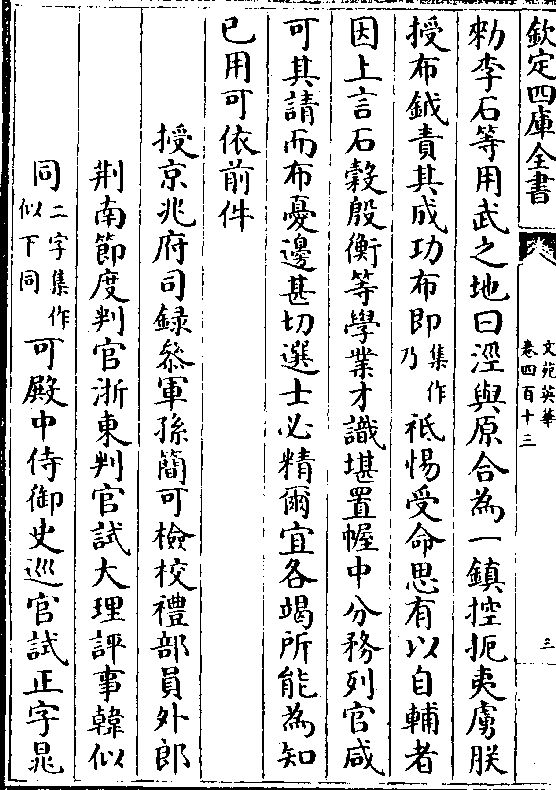 欽定四庫全書
文苑英華
卷四百十三
三
勑李石等用武之地曰涇與原合為一鎮控扼夷虜朕
授布鉞責其成功布即
集作
乃
祗惕受命思有以自輔者
因上言石縠殷衡等學業才識堪置幄中分務列官咸
可其請而布憂邊甚切選士必精爾宜各竭所能為知
已用可依前件
授京兆府司録叅軍孫簡可檢校禮部員外郎
荆南節度判官浙東判官試大理評事韓似
同
二字集作
似下同
可殿中侍御史巡官試正字晁